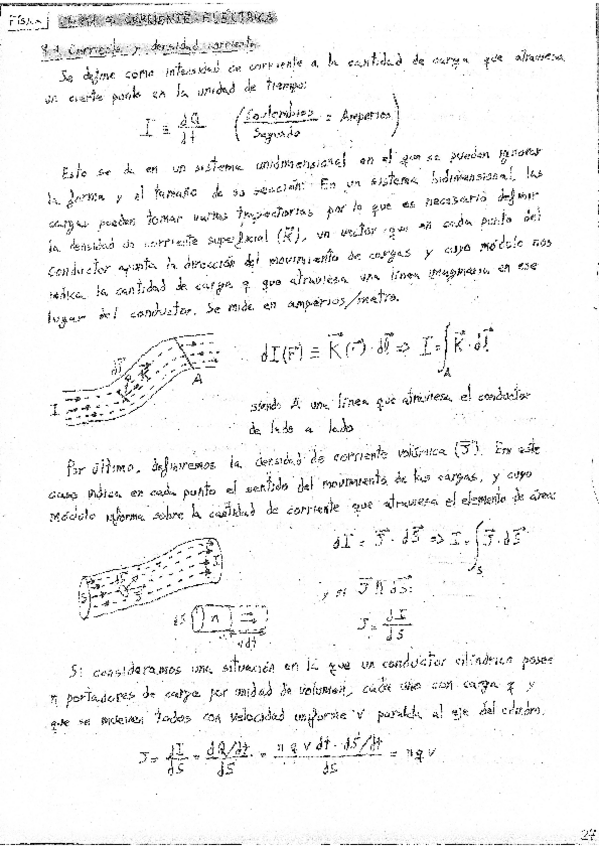 FÍSICA
CORRIENTE ELÉCTRICA
Corriente y densidad corriente
Se define como intensidad de corriente a la cantidad de carga que atraviesa
un cierto punto en la unidad de tiempo:
I ≡ dQ/dt (Coulombios/Segundo = Amperios)
Esto se da en un sistema unidimensional en el que se pueden ignorar
la forma y el tamaño de su sección. En un sistema bidimensional, las
cargas pueden tomar varias trayectorias por lo que es necesario definir
la densidad de corriente superficial (K⃗), un vector que en cada punto del
conductor apunta la dirección del movimiento de cargas y cuyo módulo nos
indica la cantidad de carga q que atraviesa una línea imaginaria en ese
lugar del conductor. Se mide en amperios/metro.
dl⃗
K⃗
I
A
dI(r⃗) ≡ K⃗(r⃗)·dl⃗ ⇒ I = ∫_A K⃗·dl⃗
siendo A una línea que atraviesa el conductor
de lado a lado
Por último, definiremos la densidad de corriente volúmica (J⃗). En este
caso indica en cada punto el sentido del movimiento de las cargas, y cuyo
módulo informa sobre la cantidad de corriente que atraviesa el elemento de área:
dI = J⃗·dS⃗ ⇒ I = ∫_S J⃗·dS⃗
y si J⃗ ∥ dS⃗:
J = dI/dS
dS n
vdt
Si consideramos una situación en la que un conductor cilíndrico posee
n portadores de carga por unidad de volumen, cada uno con carga q y
que se mueven todos con velocidad uniforme v paralela al eje del cilindro.
J = dI/dS = dQ/dt/dS = n q v dt · dS/dt/dS = n q v
27